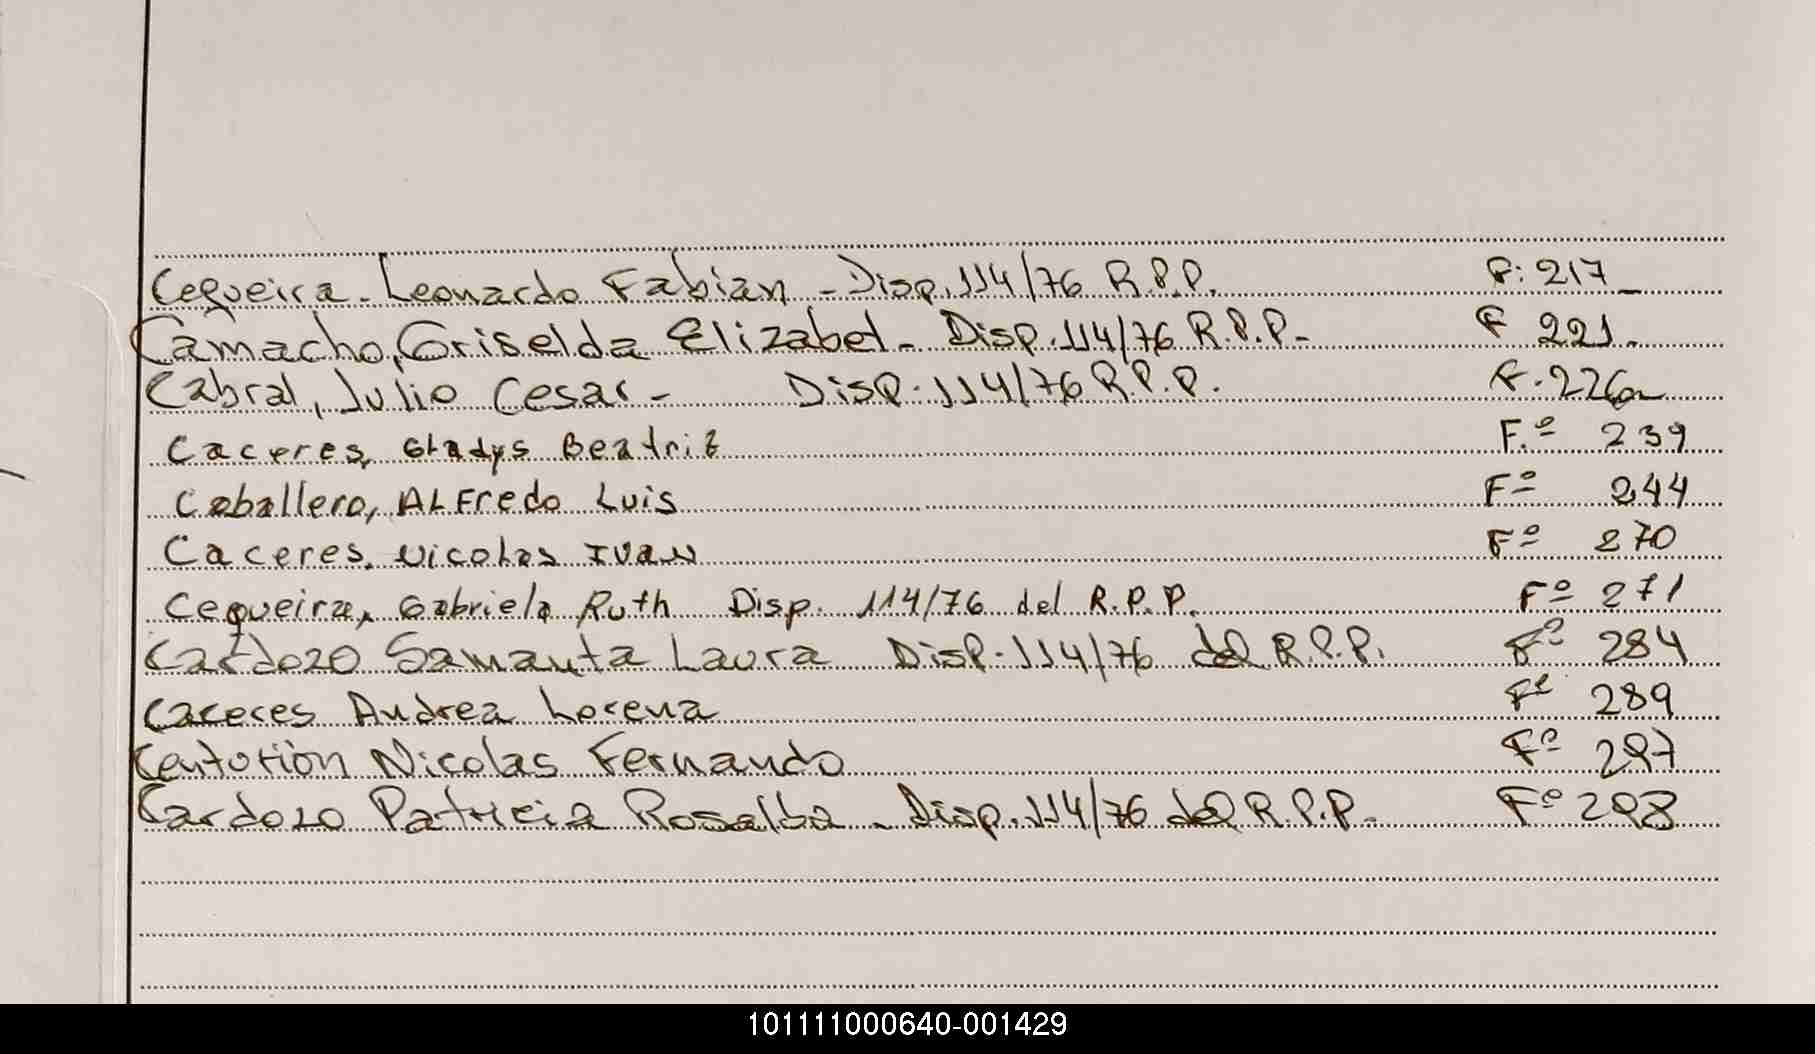 Cequeira - Leonardo Fabian - Disp. 114/76 R.P.P. F: 217_
Camacho, Griselda Elizabet - Disp. 114/76 R.P.P - F 221.
Cabral, Julio Cesar - Disp. 114/76 R.P.P. F. 226
Caceres, Gladys Beatriz F.º 239
Caballero, ALFredo Luis Fº 244
Caceres, Nicolas Ivan Fº 270
Cequeira, Gabriela Ruth Disp. 114/76 del R.P.P. Fº 271
Cardozo Samanta Laura Disp. 114/76 del R.P.P. Fº 284
Caceres Andrea Lorena Fº 289
Centurión Nicolas Fernando Fº 297
Cardozo Patricia Rosalba - Disp. 114/76 del R.P.P. Fº 298
101111000640-001429